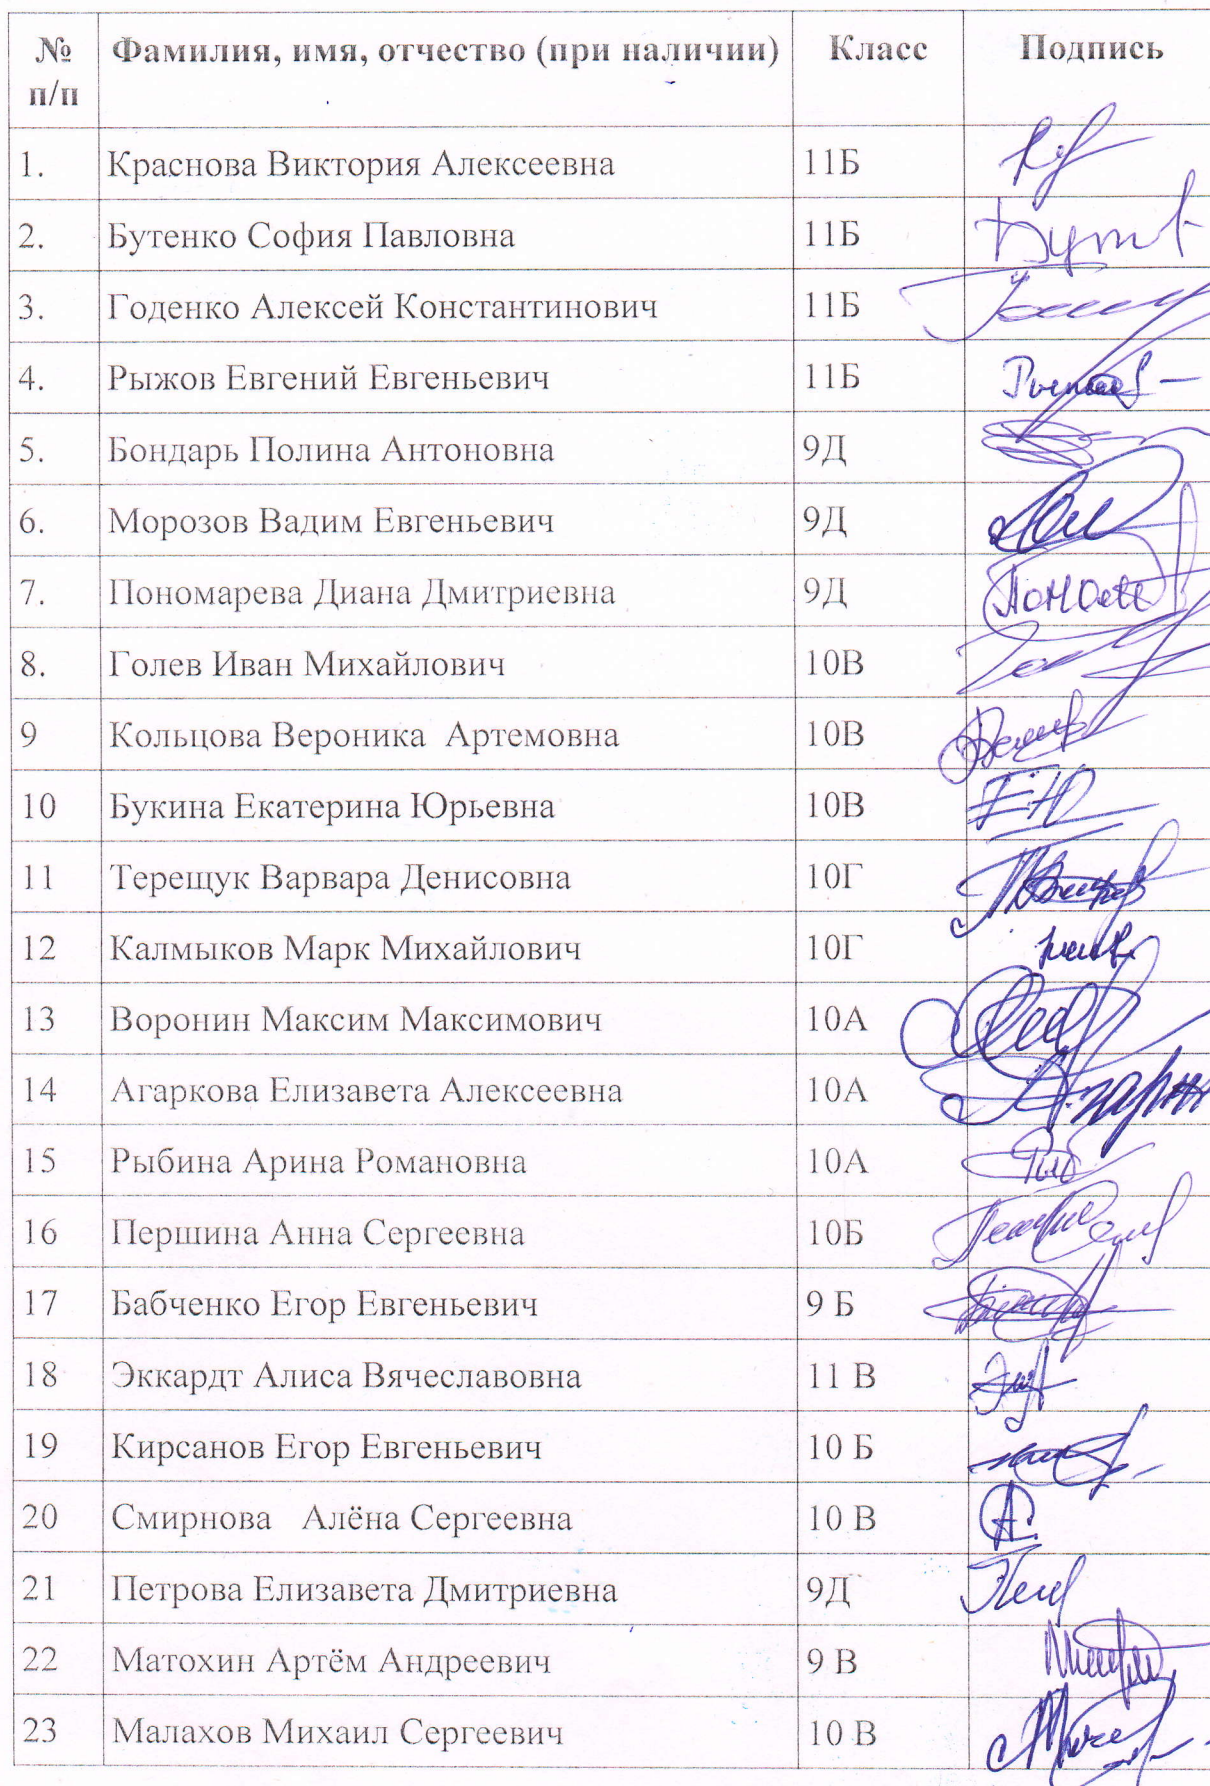 № п/п Фамилия, имя, отчество (при наличии) Класс Подпись
1. Краснова Виктория Алексеевна 11Б
2. Бутенко София Павловна 11Б
3. Годенко Алексей Константинович 11Б
4. Рыжов Евгений Евгеньевич 11Б
5. Бондарь Полина Антоновна 9Д
6. Морозов Вадим Евгеньевич 9Д
7. Пономарева Диана Дмитриевна 9Д
8. Голев Иван Михайлович 10В
9 Кольцова Вероника Артемовна 10В
10 Букина Екатерина Юрьевна 10В
11 Терещук Варвара Денисовна 10Г
12 Калмыков Марк Михайлович 10Г
13 Воронин Максим Максимович 10А
14 Агаркова Елизавета Алексеевна 10А
15 Рыбина Арина Романовна 10А
16 Першина Анна Сергеевна 10Б
17 Бабченко Егор Евгеньевич 9 Б
18 Эккардт Алиса Вячеславовна 11 В
19 Кирсанов Егор Евгеньевич 10 Б
20 Смирнова Алёна Сергеевна 10 В
21 Петрова Елизавета Дмитриевна 9Д
22 Матохин Артём Андреевич 9 В
23 Малахов Михаил Сергеевич 10 В